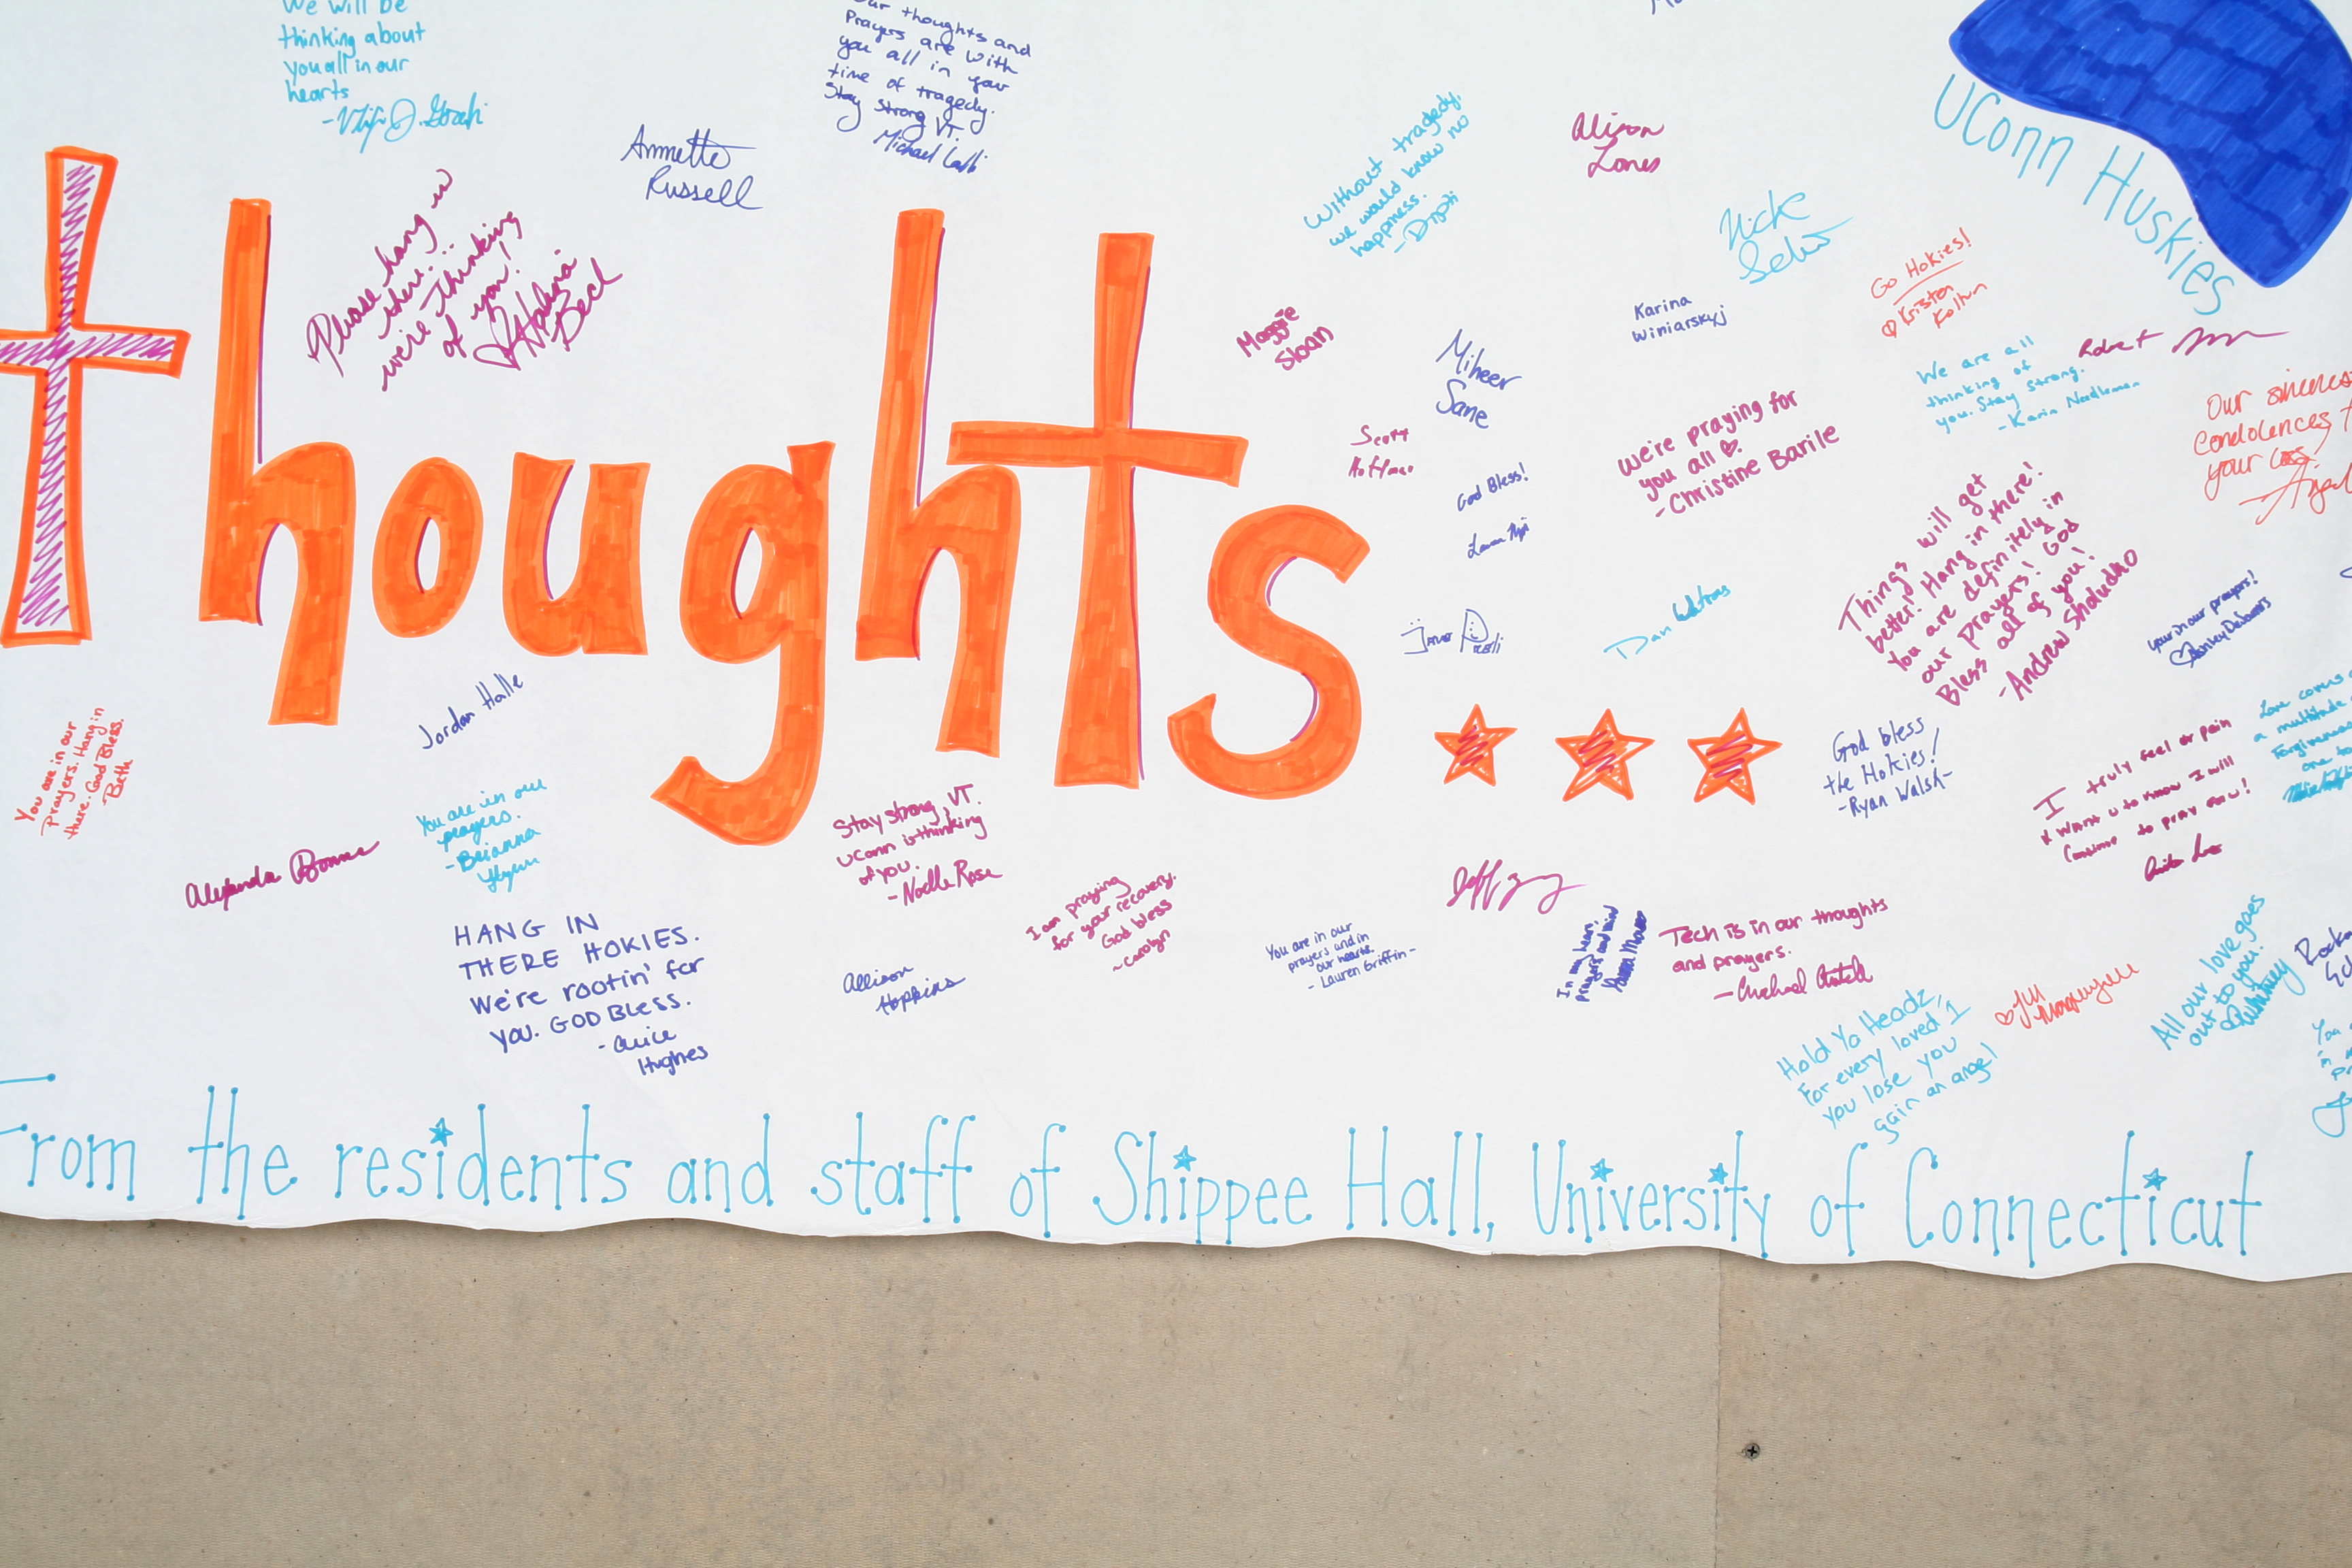 We will be
thinking about
you all in our
hearts
Our thoughts and
Prayers are with
you all in your
time of tragedy.
Stay Strong VT.
Michael
Annette
Russell
Without tragedy,
we would know no
happiness.
Alison
Nick
UConn Huskies
Please hang in
there...
we're thinking
of you!
Maggie
Sloan
Miheer
Sane
Karina
Winiarskyj
Go Hokies!
Kristen
Robert
We are all
thinking of
you. Stay Strong.
-Karin Needleman
Our sincerest
Condolences
your loss,
thoughts
Scott
Hoffman
God Bless!
we're praying for
you all
-Christine Barile
Things will get
better! Hang in there!
You are definitely in
our prayers! God
Bless all of you!
-Andrew Sholudko
your in our prayers!
Dan
Jordan Halle
You are in our
Prayers. Hang in
there. God Bless.
-Beth
God bless
the Hokies!
-Ryan Walsh-
I truly feel or pain
& want u to know I will
Continue to pray 4 u!
Love covers
a multitude
You are in our
prayers.
-Brianna
Stay strong, VT.
UConn is thinking
of you.
-Noelle Rose
Alexandra
HANG IN
THERE HOKIES.
We're rootin' for
you. GOD BLESS.
-Alice
Hughes
Allison
Hopkins
I am praying
for your recovery.
God bless
~Carolyn
You are in our
prayers and in
our hearts.
- Lauren Griffin -
In my heart,
prayers and mind
Tech is in our thoughts
and prayers.
-Michael
Hold Ya Headz,
For every loved 1
you lose you
gain an angel
Jill
All our love goes
out to you.
Whitney
From the residents and staff of Shippee Hall, University of Connecticut